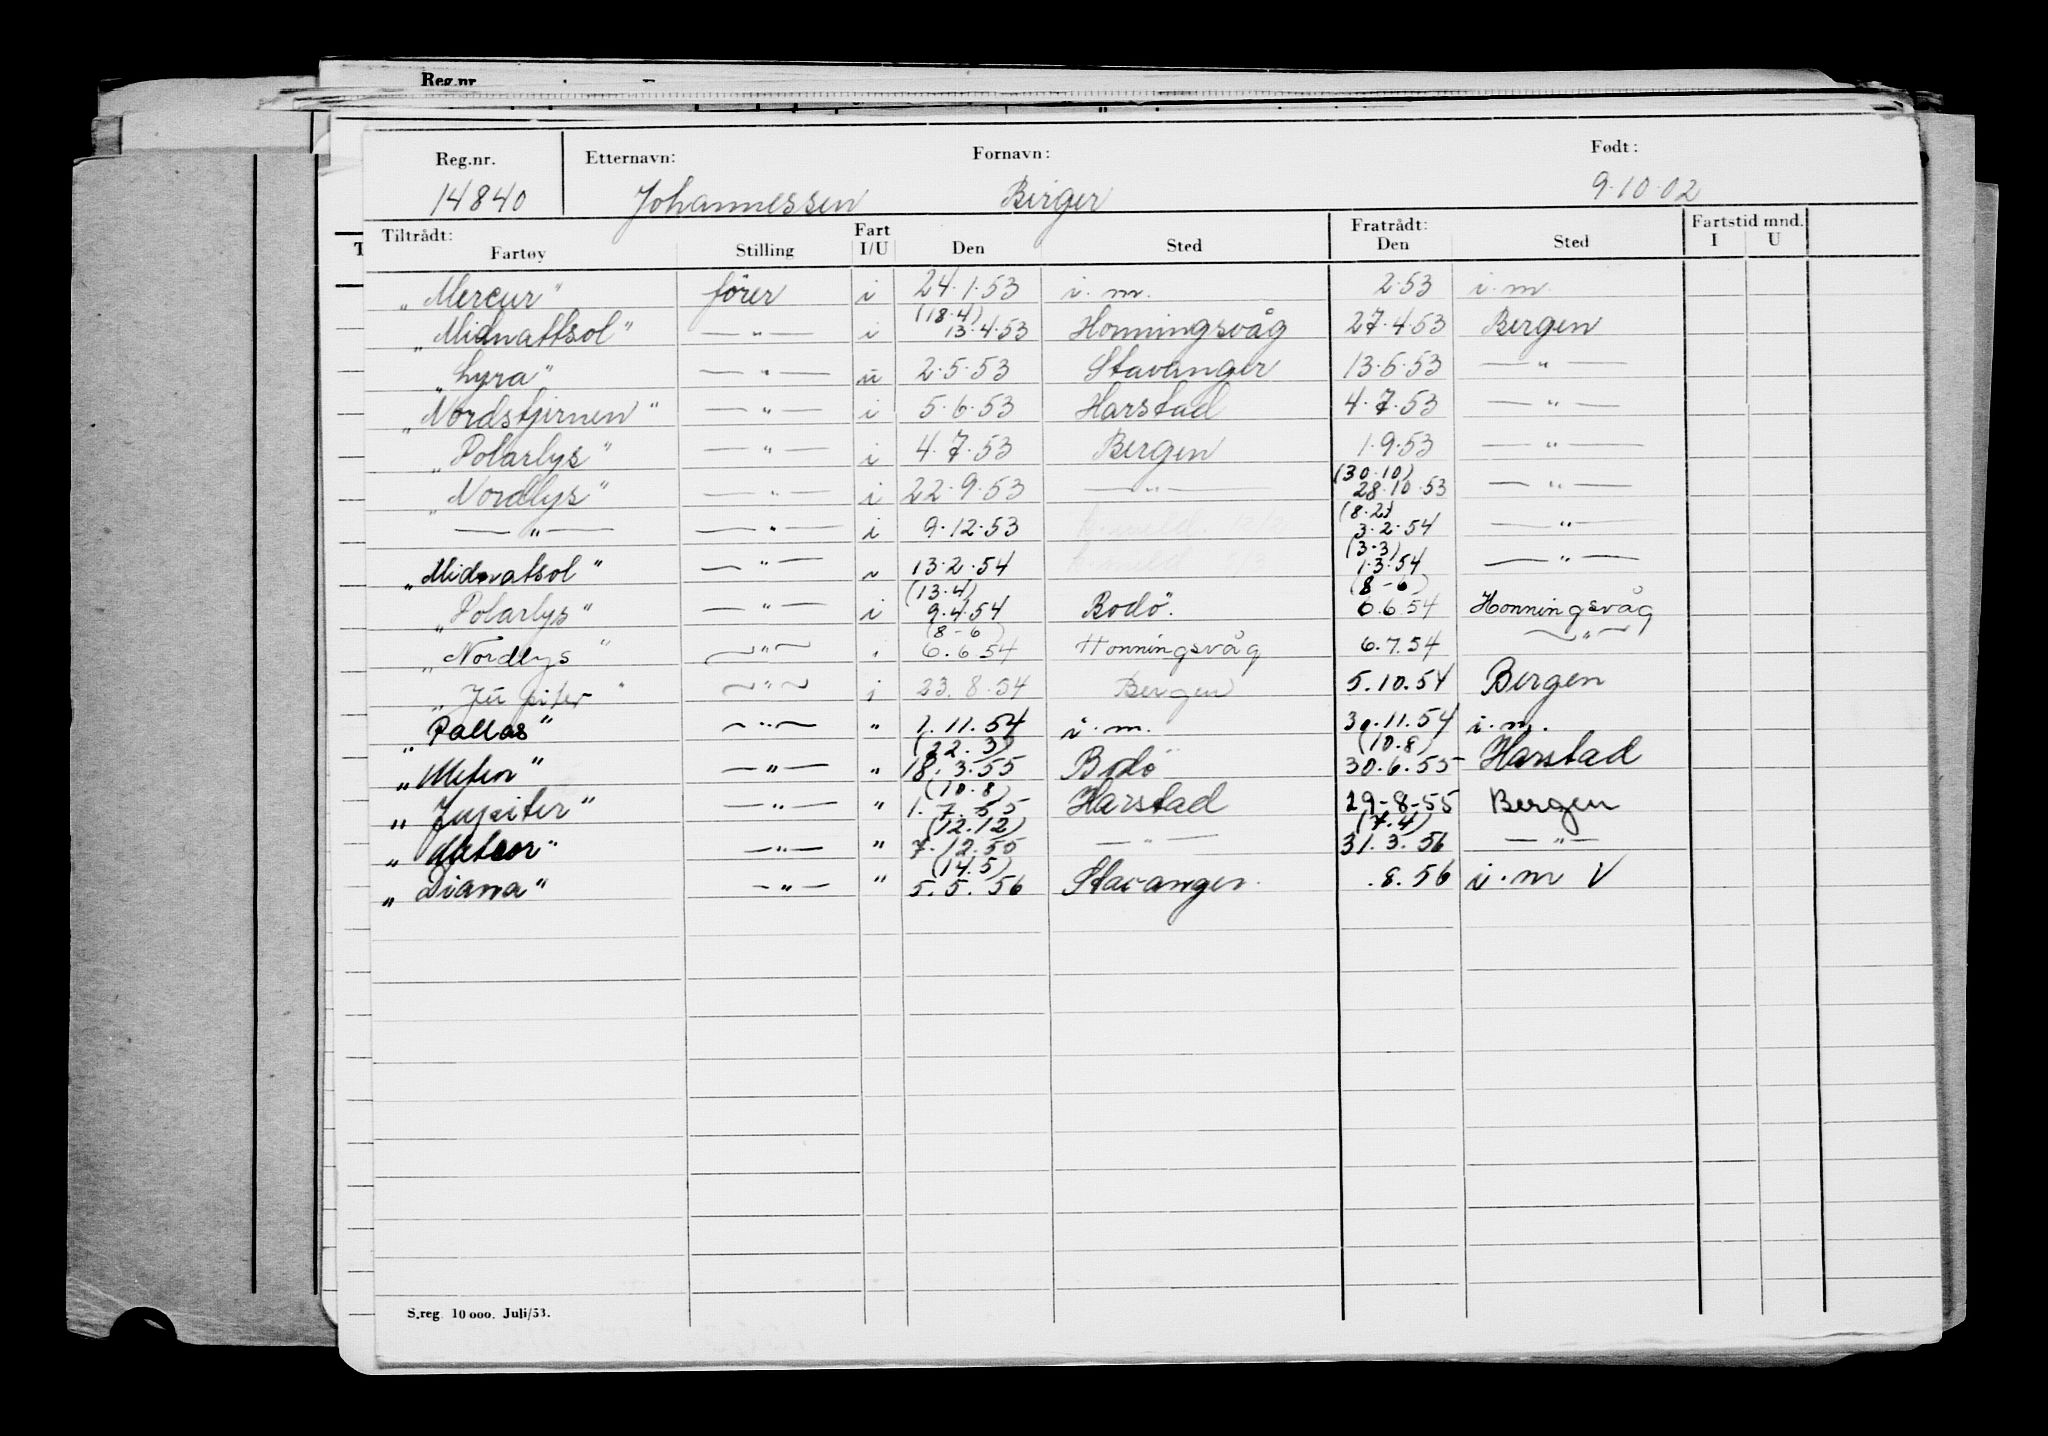 Reg.nr.
Reg.nr. Etternavn: Fornavn: Født:
14840 Johannessen Birger 9.10.02
Tiltrådt: Fart Fratrådt: Fartstid mnd.
Fartøy Stilling I/U Den Sted Den Sted I U
„Mercur" förer i 24.1.53 i.m. 2.53 i.m.
„Midnattsol" —"— i (18.4) 13.4.53 Honningsvåg 27.4.53 Bergen
„Lyra" —"— u 2.5.53 Stavanger 13.5.53 —"—
„Nordstjernen" —"— i 5.6.53 Harstad 4.7.53 —"—
„Polarlys" —"— i 4.7.53 Bergen 1.9.53 —"—
„Nordlys" —"— i 22.9.53 —"— (30.10) 28.10.53 —"—
—"— —"— i 9.12.53 (8.2) 3.2.54 —"—
„Midnatsol" —"— 13.2.54 (3.3) 1.3.54 —"—
„Polarlys" —"— i (13.4) 9.4.54 Bodö. (8-6) 6.6.54 Honningsvåg
„Nordlys" —"— i (8-6) 6.6.54 Honningsvåg 6.7.54 —"—
„Jupiter" —"— i 23.8.54 Bergen 5.10.54 Bergen
„Pallas" —"— " 1.11.54 i.m. 30.11.54 i.m.
„Meteor" —"— " (22.3) 18.3.55 Bodö (10.8) 30.6.55 Harstad
„Jupiter" —"— " (10.8) 1.7.55 Harstad 29-8-55 Bergen
„Meteor" —"— " (12.12) 7.12.55 —"— (7.4) 31.3.56 —"—
„Diana" —"— " (14.5) 5.5.56 Stavanger. .8.56 i.m V
S.reg. 10 000. Juli/53.